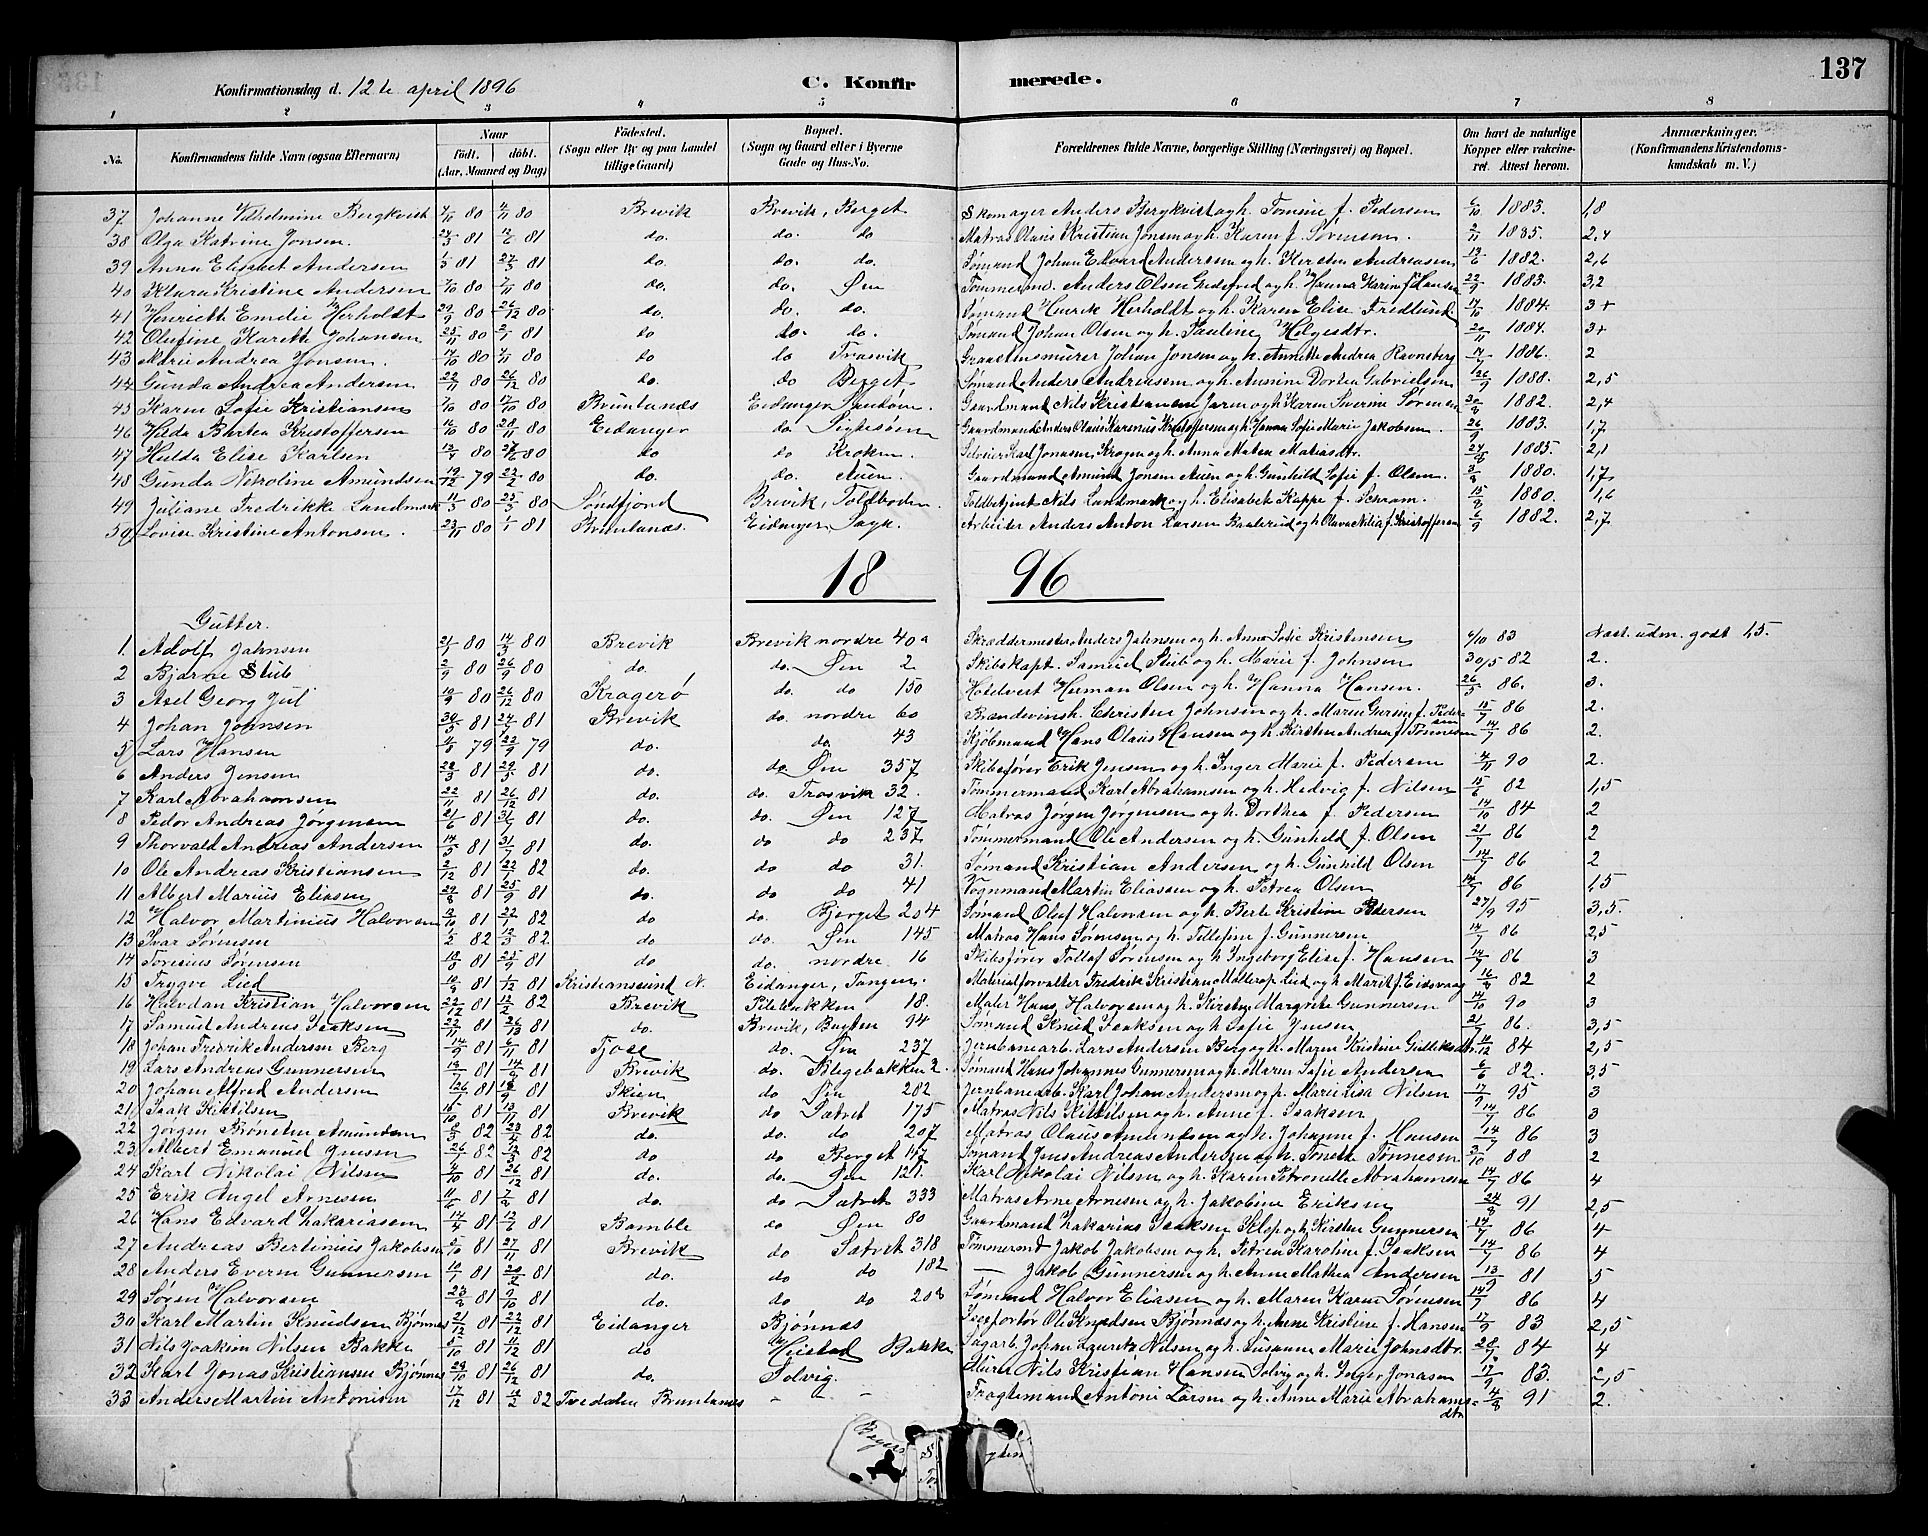 137
Konfirmationsdag d. 12te april 1896
C. Konfir merede.
1 2 3 4 5 6 7 8
No. Konfirmandens fulde Navn (ogsaa Efternavn) Naar født. døbt. (Aar, Maaned og Dag) Fødested. (Sogn eller By og paa Landet tillige Gaard) Bopæl. (Sogn og Gaard eller i Byerne Gade og Hus-No. Forældrenes fulde Navne, borgerlige Stilling (Næringsvei) og Bopæl. Om havt de naturlige Kopper eller vaccineret. Attest herom. Anmærkninger. (Konfirmandens Kristendomskundskab m. V.)
37 Johanne Vilhelmine Bergkvist 80 80 Brevik Brevik, Berget Skomager Anders Bergkvist og h. Tomine f. Pedersen 6/10 1883. 1,8
38 Olga Katrine Jonsen. 24/3 81 12/6 81 do. do. do Matros Olaus Kristian Jonsen og h. Karen f. Sørensen. 2/11 1885. 2,4
39 Anna Elisabet Andersen 1/3 81 27/3 81 do. do. do. Sømand Johan Edvard Andersen og h. Kirsten Andreasen 13/6 1882. 2,6
40 Klara Kristine Andersen 7/10 80 80 do. do. Øen Tømmermd. Anders Olsen og h. Hanna Karine f. Hansen 22/9 1883. 3,2
41 Henriette Emelie Herholdt 29/9 80 26/12 80 do. do. do. Sømand Henrik Herholdt og h. Karen Elise Fredlund. 14/10 1884. 3+
42 Olufine Karette Johansen 25/11 80 2/1 81 do do. do. Sømand Johan Olsen og h. Pauline Helgesdtr. 20/11 1884. 3+
43 Marie Andrea Jonsen. 17/10 80 7/11 80 do do Trosvik Graastensmurer Johan Jonsen og h. Annette Andrea Ravnsberg 14/7 1886. 2
44 Gunda Andrea Andersen 22/11 80 26/12 80 do. do Berget Sømand Anders Andreasen og h. Annine Dortea Gabrielsen 26/9 1888. 2,5
45 Karen Sofie Kristiansen 7/10 80 17/10 80 Brunlanæs Eidanger Sandøen. Gaardmand Nils Kristiansen og h. Karen Severine Sørensen 30/8 1882. 2,4
46 Hilda Bertea Kristoffersen 12/10 80 28/11 80 Eidanger do. Gaardmand Anders Olaus Karenius Kristoffersen og h. Hanna Sofie Marie Jakobsen. 26/9 1883. 1,7
47 Hulda Elise Karlsen 80 do do Kroken Karl Jonassen Krogen og h. Anna Matea Matiasdtr. 1885. 2,1
48 Gunda Nikoline Amundsen 19/12 79 22/2 80 do. do. Auen. Gaardmand Amund Jonsen Auen og h. Gunhild Sofie f. Olsen. 3/8 1880. 1,7
49 Juliane Fredrikke Landmark 11/3 80 23/5 80 Søndfjord Brevik, Toldboden. Toldbetjent Nils Landmark og h. Elisabet Kappe f. Schram. 15/8 1880. 1,6
50 Lovise Kristine Antonsen. 23/11 80 1/1 81 Brunlanæs. Eidanger Arbeider Anders Anton Larsen og h. Olava Nilia f. Kristoffersen 6/9 1882. 2,7
18 96
Gutter.
1. Adolf Jahnsen 21/1 80 14/3 80 Brevik Brevik nordre 40a Skræddermester Anders Jahnsen og h. Anna Sofie Kristensen 4/10 83 Nast. udm. godt 1,5.
2 Bjarne Stub 2/9 80 26/9 80 do. do. Øen 2 Skibskapt. Samuel Stub og h. Marie f. Johnsen 30/5 82 2.
3 Axel Georg Jul 19/9 80 26/12 80 Kragerö do. do 150 Hotelvert Herman Olsen og h. Hanna Hansen. 26/5 86. 3.
4 Johan Johnsen 30/3 81 24/4 81 Brevik do. nordre 60 Brændevinsh. Christen Johnsen og h. Maren Gurine f. Pedersen 15/7 86 2.
5 Lars Hansen 79 22/9 79 do. do. 43 Kjøbmand Hans Olaus Hansen og h. Kirsten Andrea f. Tønnesen 14/7 86 2.
6 Anders Jensen 22/3 81 29/5 81 do. do. Øen 357 Skibsfører Erik Jensen og h. Inger Marie f. Pedersen 4/11 90 2.
7 Karl Abrahamsen 22/11 81 26/12 81 do. do. Trosvik 32. Tømmermand Karl Abrahamsen og h. Hedvig f. Nilsen 15/6 82 1,5
8 Peder Andreas Jørgensen 21/6 81 31/7 81 do. do. Øen 127 Matros Jørgen Jørgensen og h. Dorthea f. Pedersen 14/10 84 2
9 Thorvald Andreas Andersen 14/3 81 31/7 81 do. do do 237 Tømmermand Ole Andersen og h. Gunhild f. Olsen 21/7 86 2
10 Ole Andreas Kristiansen 2/12 81 22/1 82 do. do do 31. Sømand Kristian Andersen og h. Gunhild Olsen 14/7 86 2
11 Albert Marius Eliasen 29/8 81 25/9 81 do. do do 41 Vognmand Martin Eliassen og h. Petrea Olsen 14/7 86 1,5
12 Halvor Martinius Halvorsen 12/10 81 22/1 82 do do. Bjerget 204 Sømand Oluf Halvorsen og h. Berte Kristine Pedersen 27/9 95 3,5.
13 Ivar Sørensen 1/2 82 12/3 82 do do. Øen 145 Matros Hans Sørensen og h. Tellefine f. Gunnersen 14/7 86 2,5
14 Toresius Sørensen 18/8 81 25/9 81 do do. nordre 16 Skibsfører Tollef Sørensen og h. Ingeborg Elise f. Hansen 14/7 86 3
15 Trygve Lied 81 81 Kristiansund N. Eidanger, Tangen. Materialforvalter Fredrik Kristian Lied og h. Marit f. Eidsvaag 16/8 82 2
16 Halvdan Kristian Halvorsen 22/12 81 12/2 82 Brevik Pilebakken 18. Maler Hans Halvorsen og h. Kirsten Margrete Gunnersen 14/10 90 3
17 Samuel Andreas Isaksen 22/11 81 26/12 81 do. Brevik, Bugten 94 Sømand Knud Isaksen og h. Sofie Jensen 21/7 86. 3,5
18 Johan Fredrik Andersen Berg 14/9 81 6/11 81 Tjose do. Øen 237 Jernbanearb. Lars Andersen Berg og h. Maren Kristine Gulleksdtr. 11/12 84 2,5
19 Lars Andreas Gunnersen 81 81 Brevik do. Blegebakken 2. Sømand Hans Johannes Gunnersen og h. Maren Sofie Andersen 6/6 82. 3,5
20 Johan Alfred Andersen 81 81 Skien do. Øen 282 Jernbanearb. Karl Johan Andersen og h. Marie Lisa Nilsen 17/9 95 3
21 Isak Kittilsen 15/10 81 13/11 81 Brevik do Sætret 175 Matros Nils Kittilsen og h. Anne f. Isaksen 14/7 86 3
22 Jørgen Brønstin Amundsen 82 23/4 82 do. do. do 207 Matros Olaus Amundsen og h. Johanne f. Hansen 14/7 86 3
23 Albert Emanuel Jensen 26/1 82 12/3 82 do. do. Berget 147 Sømand Jens Andreas Andersen og h. Tonette Tønnesen 88 2
24 Karl Nikolai Nilsen 4/10 81 26/12 81 do. do. Øen 121. Karl Nikolai Nilsen og h. Karen Petronelle Abrahamsen 14/7 86 4
25 Erik Angel Arnesen 81 81 do. do Sætret 333 Matros Arne Arnesen og h. Jakobine Eriksen 24/8 91 2,5
26 Hans Edvard Zakariassen 14/4 81 12/6 81 Bamble do Øen 80 Gaardmand Zakarias Isaksen og h. Kirsten Gunnersen 14/7 86 4
27 Andreas Bertinius Jakobsen 5/10 81 27/11 81 Brevik do Sætret 318 Tømmermd. Jakob Jakobsen og h. Petrea Karoline f. Isaksen 14/7 86 4
28 Anders Evensen Gunnersen 10/1 81 20/2 81 do. do do 182 — Jakob Gunnersen og h. Anne Mathea Andersen 13/9 81 5
29 Søren Halvorsen 23/8 81 9/10 81 do. do do 208 Sømand Halvor Eliasen og h. Maren Karine Sørensen 14/7 86 4
30 Karl Martin Knudsen Bjønnes 21/12 81 22/12 81 Eidanger Bjønnæs Ole Knudsen Bjønnæs og h. Anne Kristine f. Hansen 17/9 83 2,5
31 Nils Joakim Nilsen Bakke 15/10 81 11/12 81 do Heistad Bakken Sagarb. Johan Lauritz Nilsen og h. Susanne Marie Johnsdtr. 28/9 84 4
32 Karl Jonas Kristiansen Bjønnes 29/10 81 26/12 81 do. Solvig. Nils Kristian Hansen Solvig og h. Inger Jonasen 17/9 83. 2,5
33 Anders Martin Antonisen 17/12 81 12/2 82 Tvedalen Brunlanæs — — Fragtemand Antoni Larsen og h. Anne Marie Abrahamsdtr. 4/8 91 2.